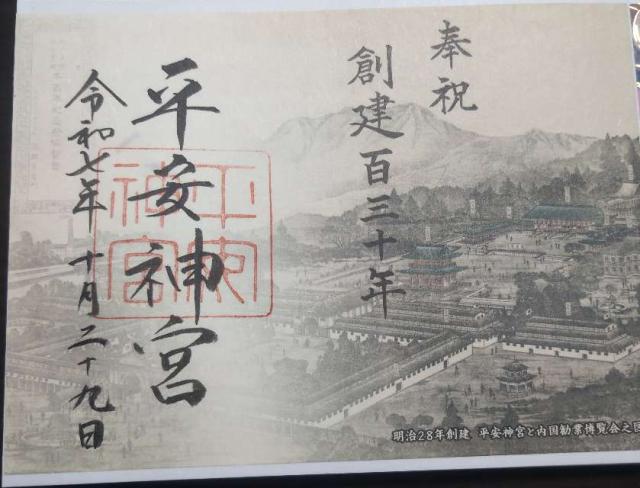 奉祝
創建百三十年
平安神宮
平安神宮
令和七年 十月二十九日
明治28年創建 平安神宮と内国勧業博覧会之図